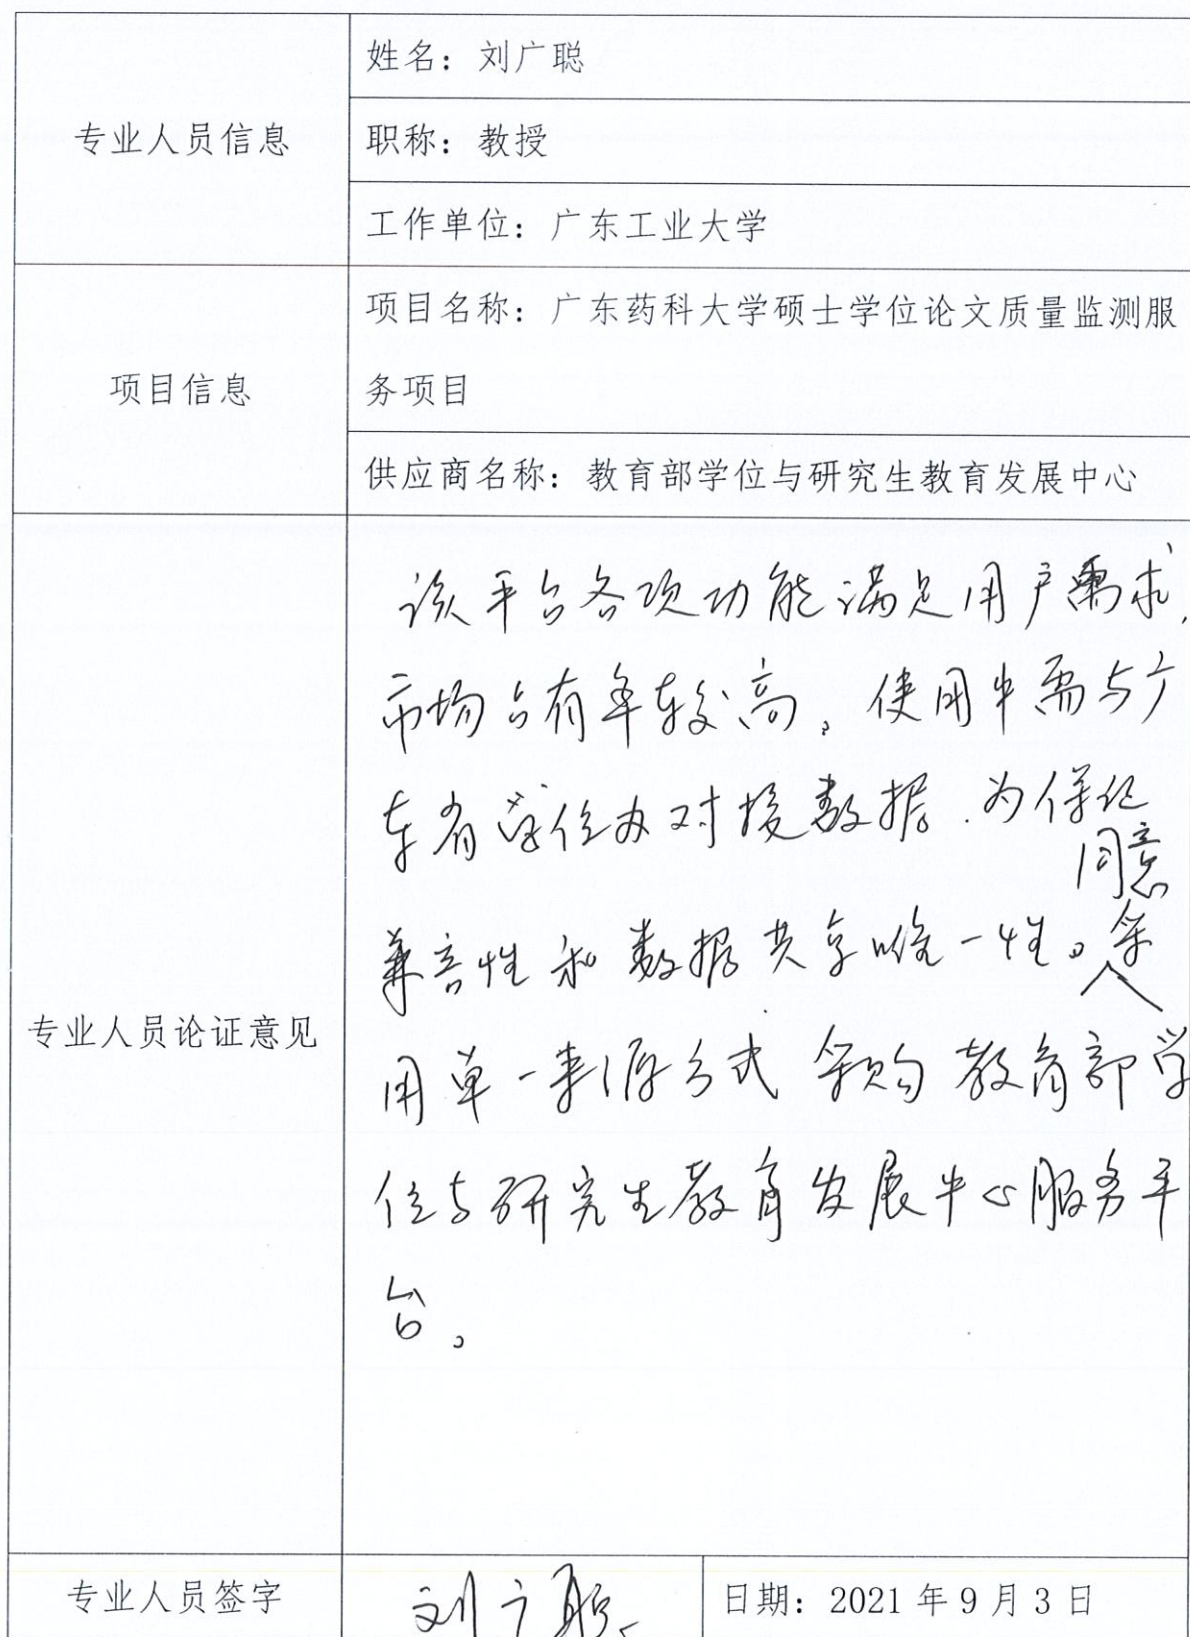 专业人员信息
姓名：刘广聪
职称：教授
工作单位：广东工业大学
项目信息
项目名称：广东药科大学硕士学位论文质量监测服
务项目
供应商名称：教育部学位与研究生教育发展中心
专业人员论证意见
该平台各项功能满足用户需求，
市场占有率较高，使用中需与广
东省学位办对接数据，为保证
兼容性和数据共享唯一性。同意采
用单一来源方式采购教育部学
位与研究生教育发展中心服务平
台。
专业人员签字
刘广聪
日期：2021年9月3日